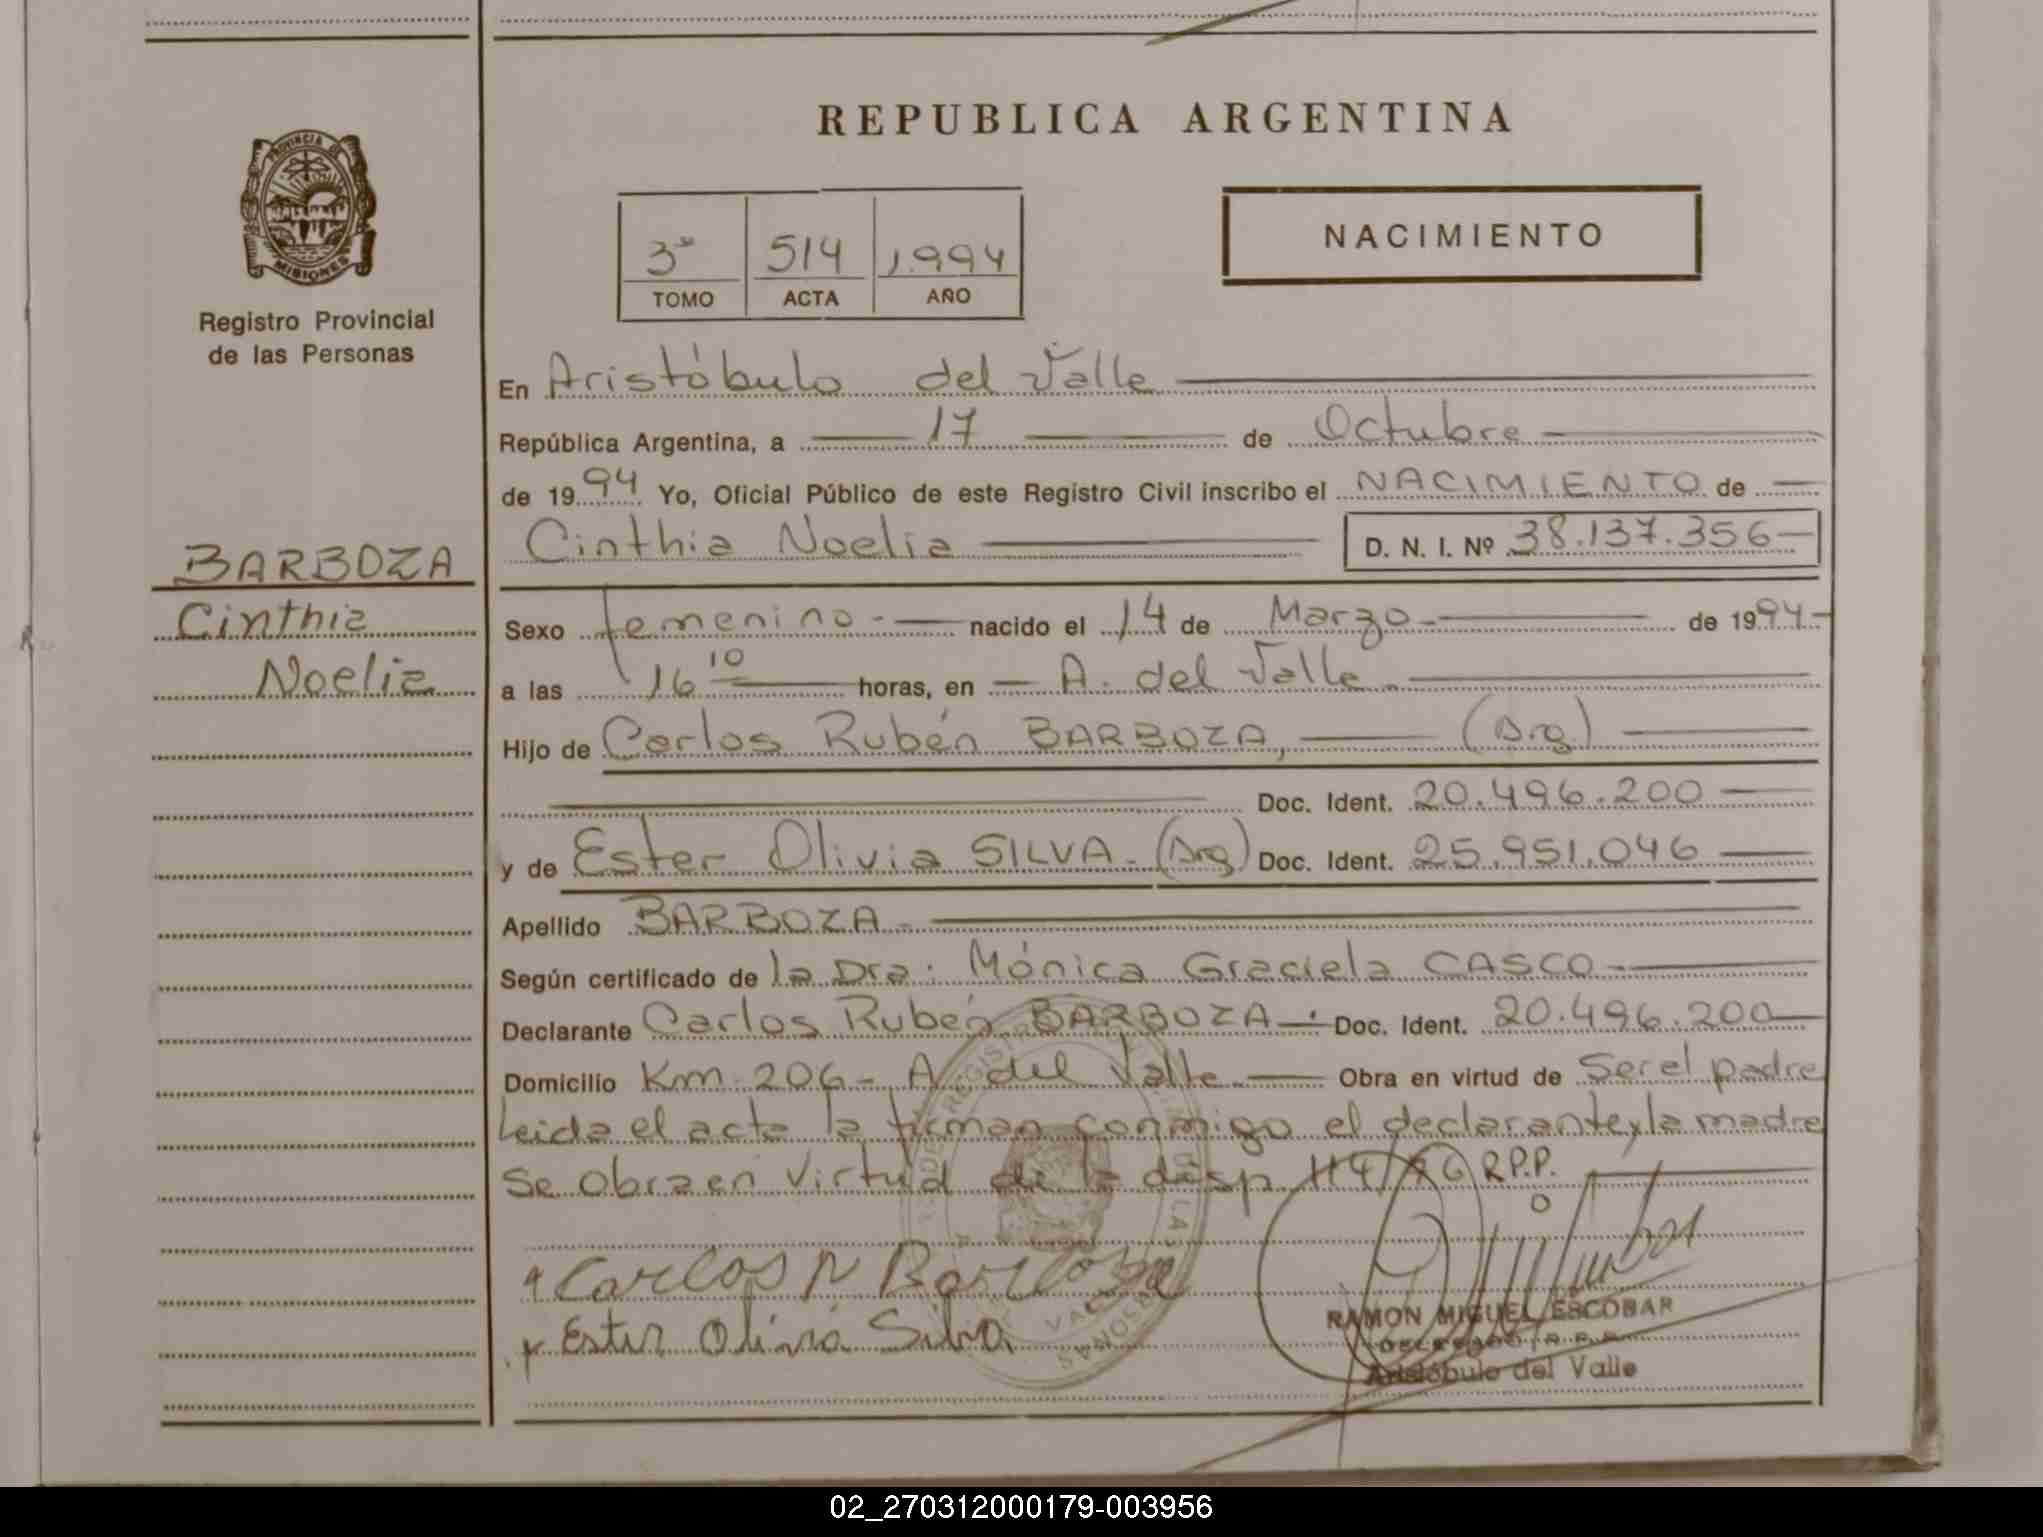 REPUBLICA ARGENTINA
PROVINCIA DE
MISIONES
Registro Provincial
de las Personas
3º 514 1.994
TOMO ACTA AÑO
NACIMIENTO
En Aristóbulo del Valle
República Argentina, a 17 de Octubre
de 1994 Yo, Oficial Público de este Registro Civil inscribo el NACIMIENTO de
Cinthia Noelia D. N. I. Nº 38.137.356
BARBOZA
Cinthia
Noelia
Sexo femenino.- nacido el 14 de Marzo.- de 1994-
a las 16 10 horas, en - A. del Valle.-
Hijo de Carlos Rubén BARBOZA, (Arg.)
Doc. Ident. 20.496.200
y de Ester Olivia SILVA.- (Arg) Doc. Ident. 25.951.046
Apellido BARBOZA.-
Según certificado de la Dra. Mónica Graciela CASCO.-
Declarante Carlos Rubén BARBOZA Doc. Ident. 20.496.200
Domicilio Km. 206 - A. del Valle.- Obra en virtud de Ser el padre
Leida el acta la firman conmigo el declarante y la madre
Se obra en virtud de la disp. R.P.P.
Carlos R Barboza
Ester Olivia Silva
RAMON MIGUEL ESCOBAR
DELEGADO R.P.P.
Aristóbulo del Valle
02_270312000179-003956